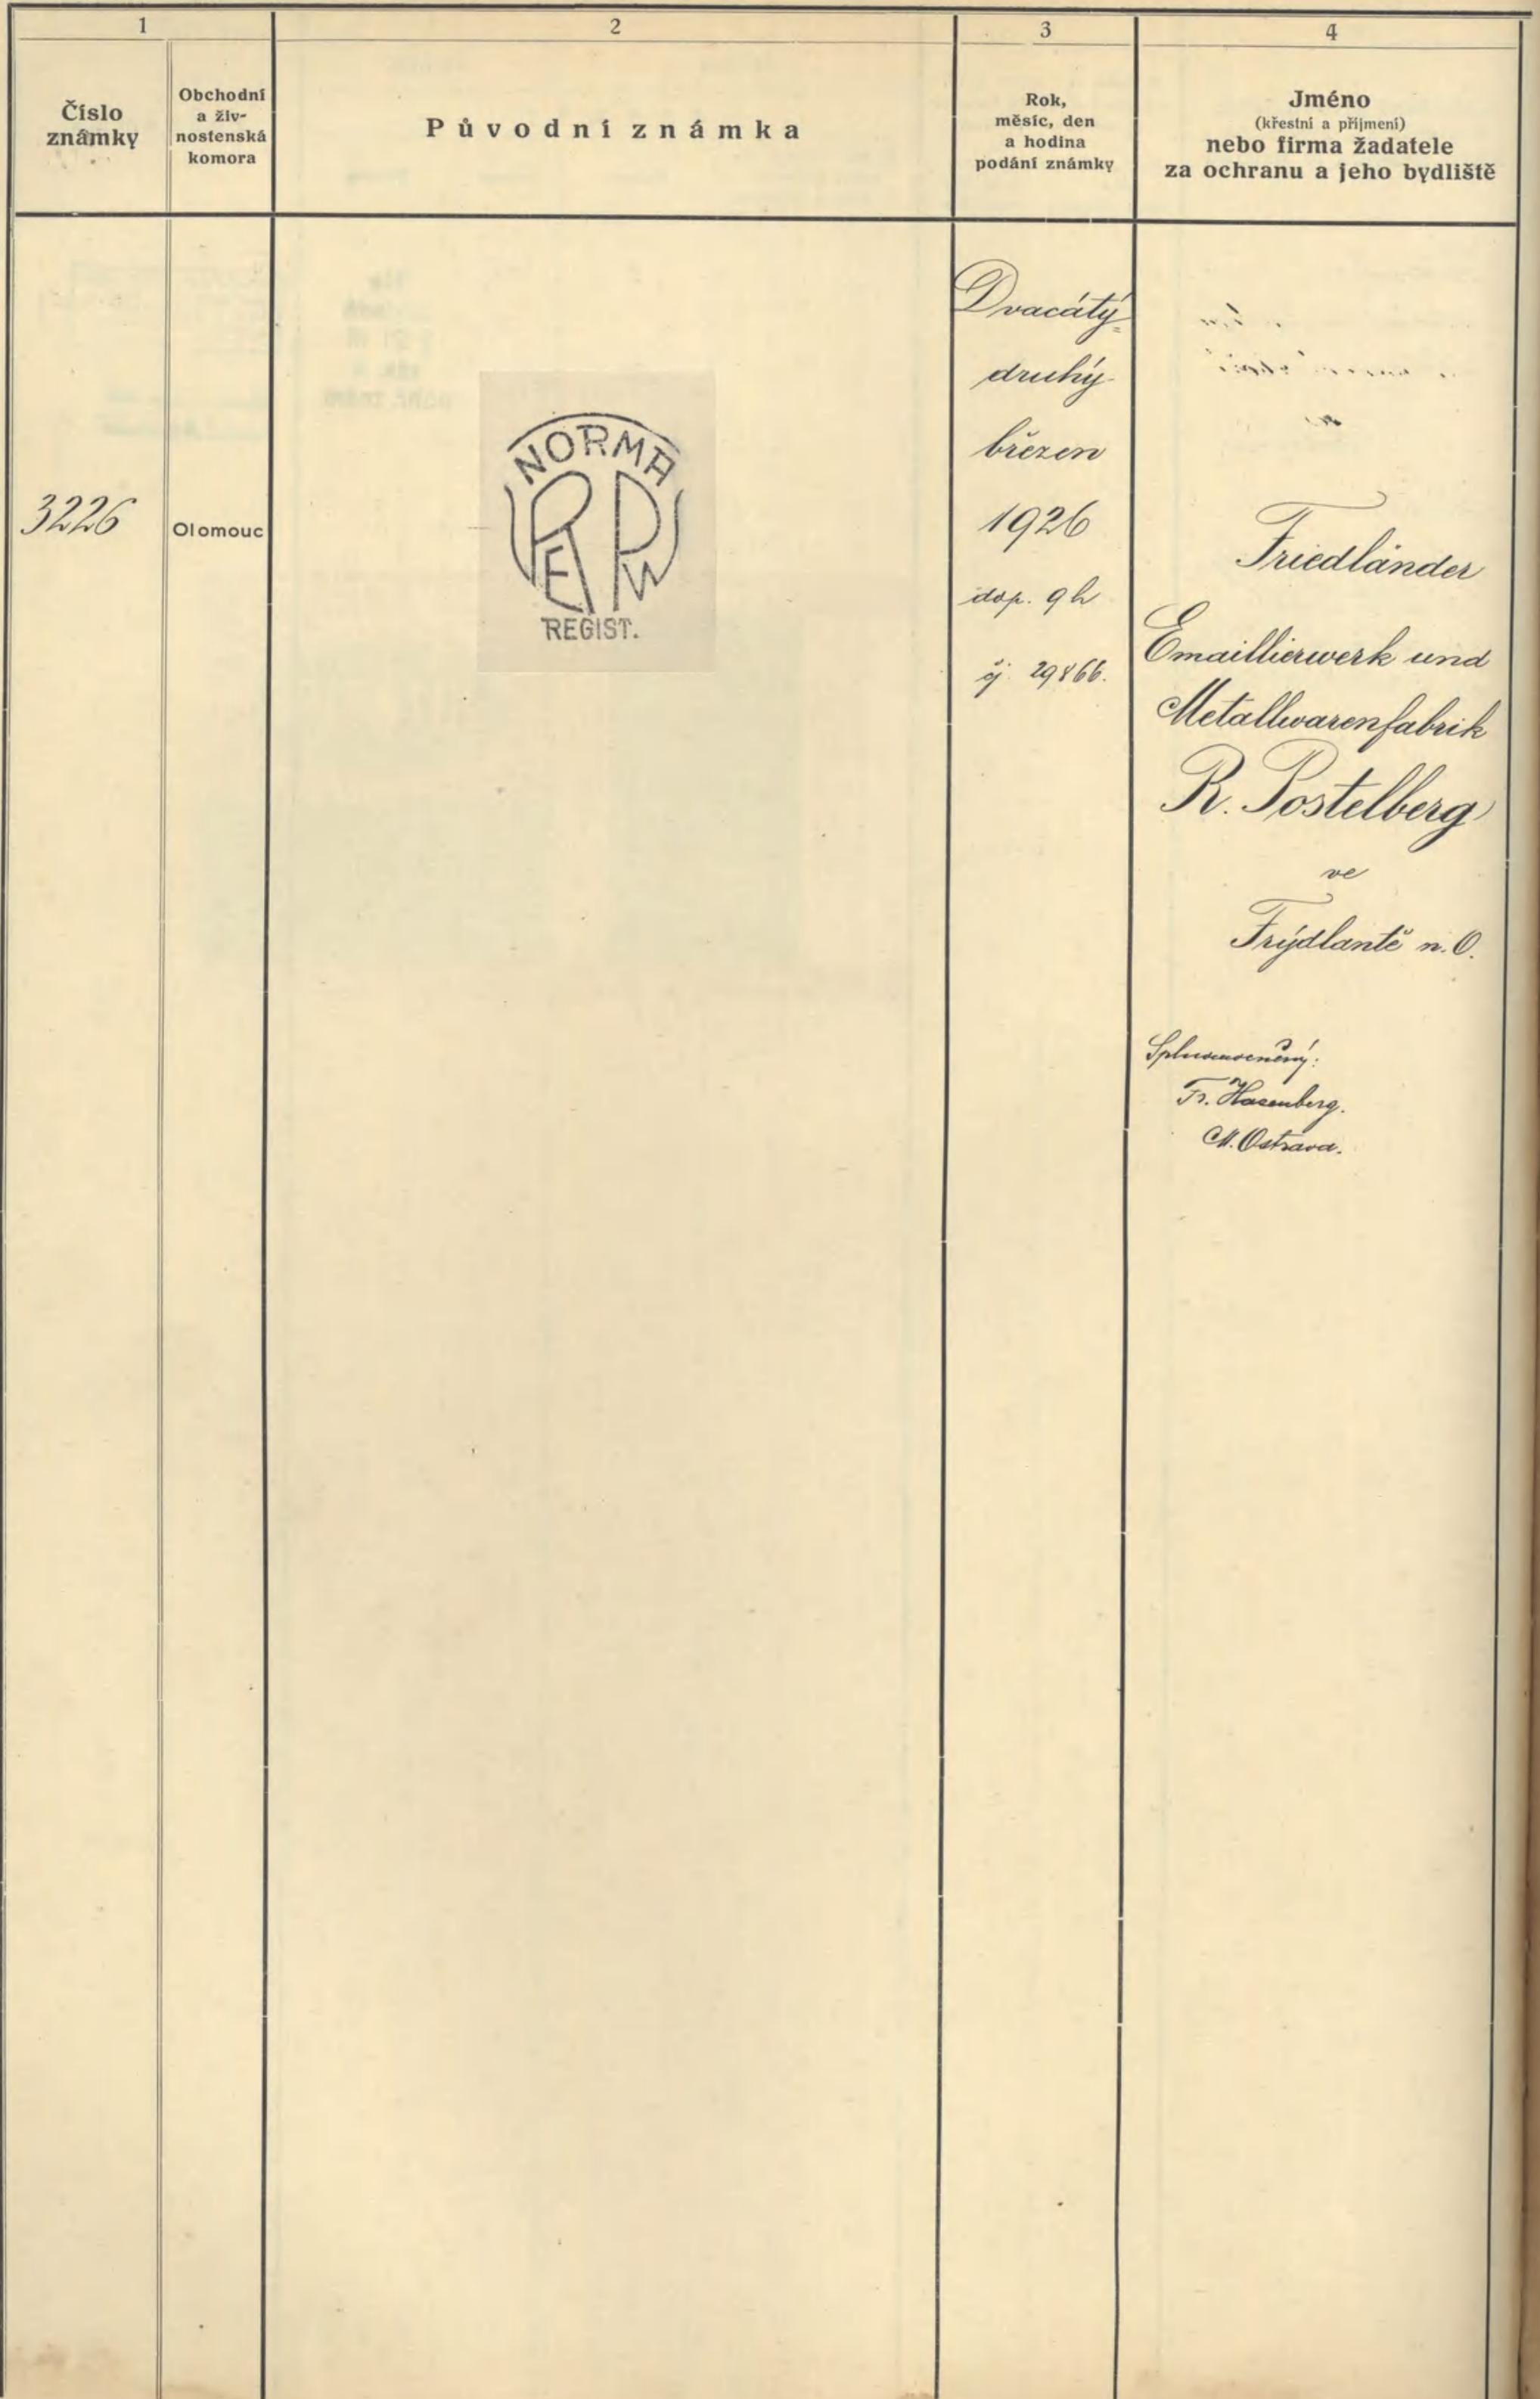 1
2
3
4
Číslo
známky
Obchodní
a živ-
nostenská
komora
Původní známka
Rok,
měsíc, den
a hodina
podání známky
Jméno
(křestní a příjmení)
nebo firma žadatele
za ochranu a jeho bydliště
3226
Olomouc
NORMA
REGIST.
Dvacátý-
druhý
březen
1926
dop. 9 h
čj. 29866.
Friedländer
Emaillierwerk und
Metallwarenfabrik
R. Postelberg
ve
Frýdlantě n. O.
Splnomocněný:
Fr. Hasenberg.
M. Ostrava.